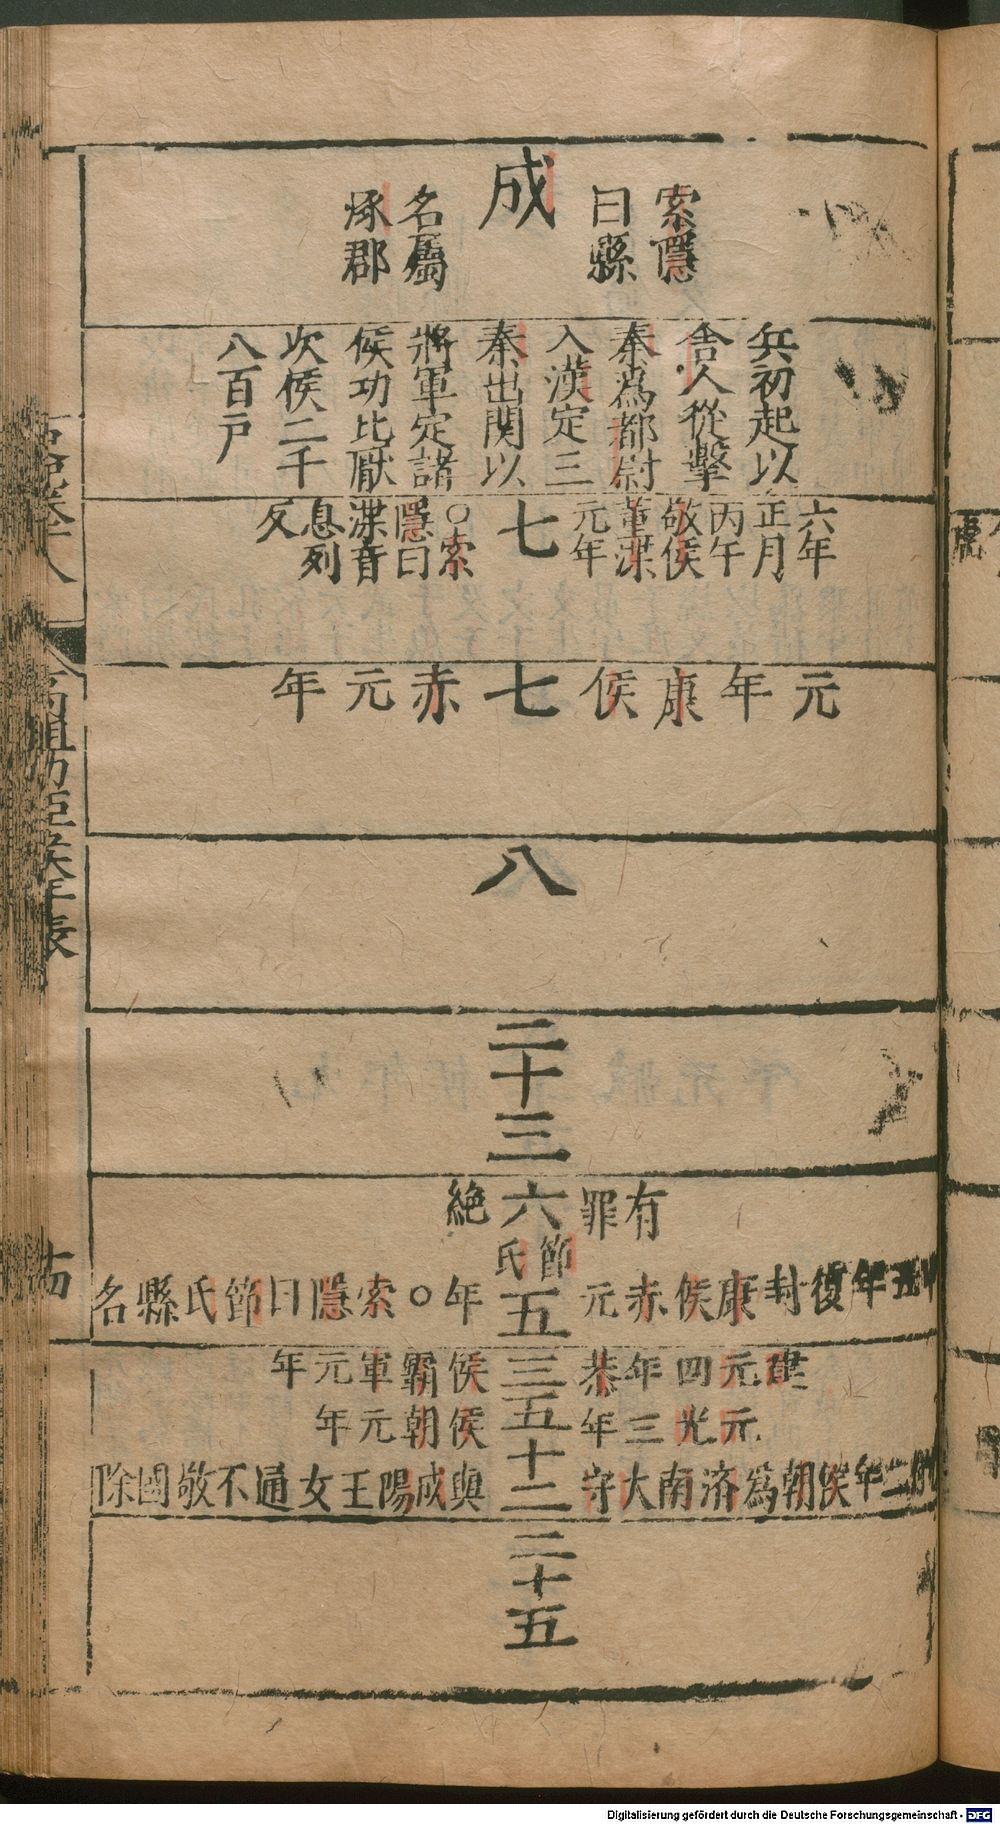 索隱
曰縣
成
名屬
涿郡
兵初起以
舍人從擊
秦爲都尉
入漢定三
秦出関以
將軍定諸
侯功比厭
次侯二千
八百戸
六年
正月
丙午
敬侯
董渫
元年
七
○索
隱曰
渫音
息列
反
元年康侯七赤元年
八
二十三
有罪六絶
節氏
五年復封康侯赤元五年○索隱曰節氏縣名
建元四年恭三侯霸軍元年
元光三年五侯朝元年
三年侯朝爲济南大守十二與成陽王女通不敬國除
二十五
高祖功臣侯年表
Digitalisierung gefördert durch die Deutsche Forschungsgemeinschaft - DFG